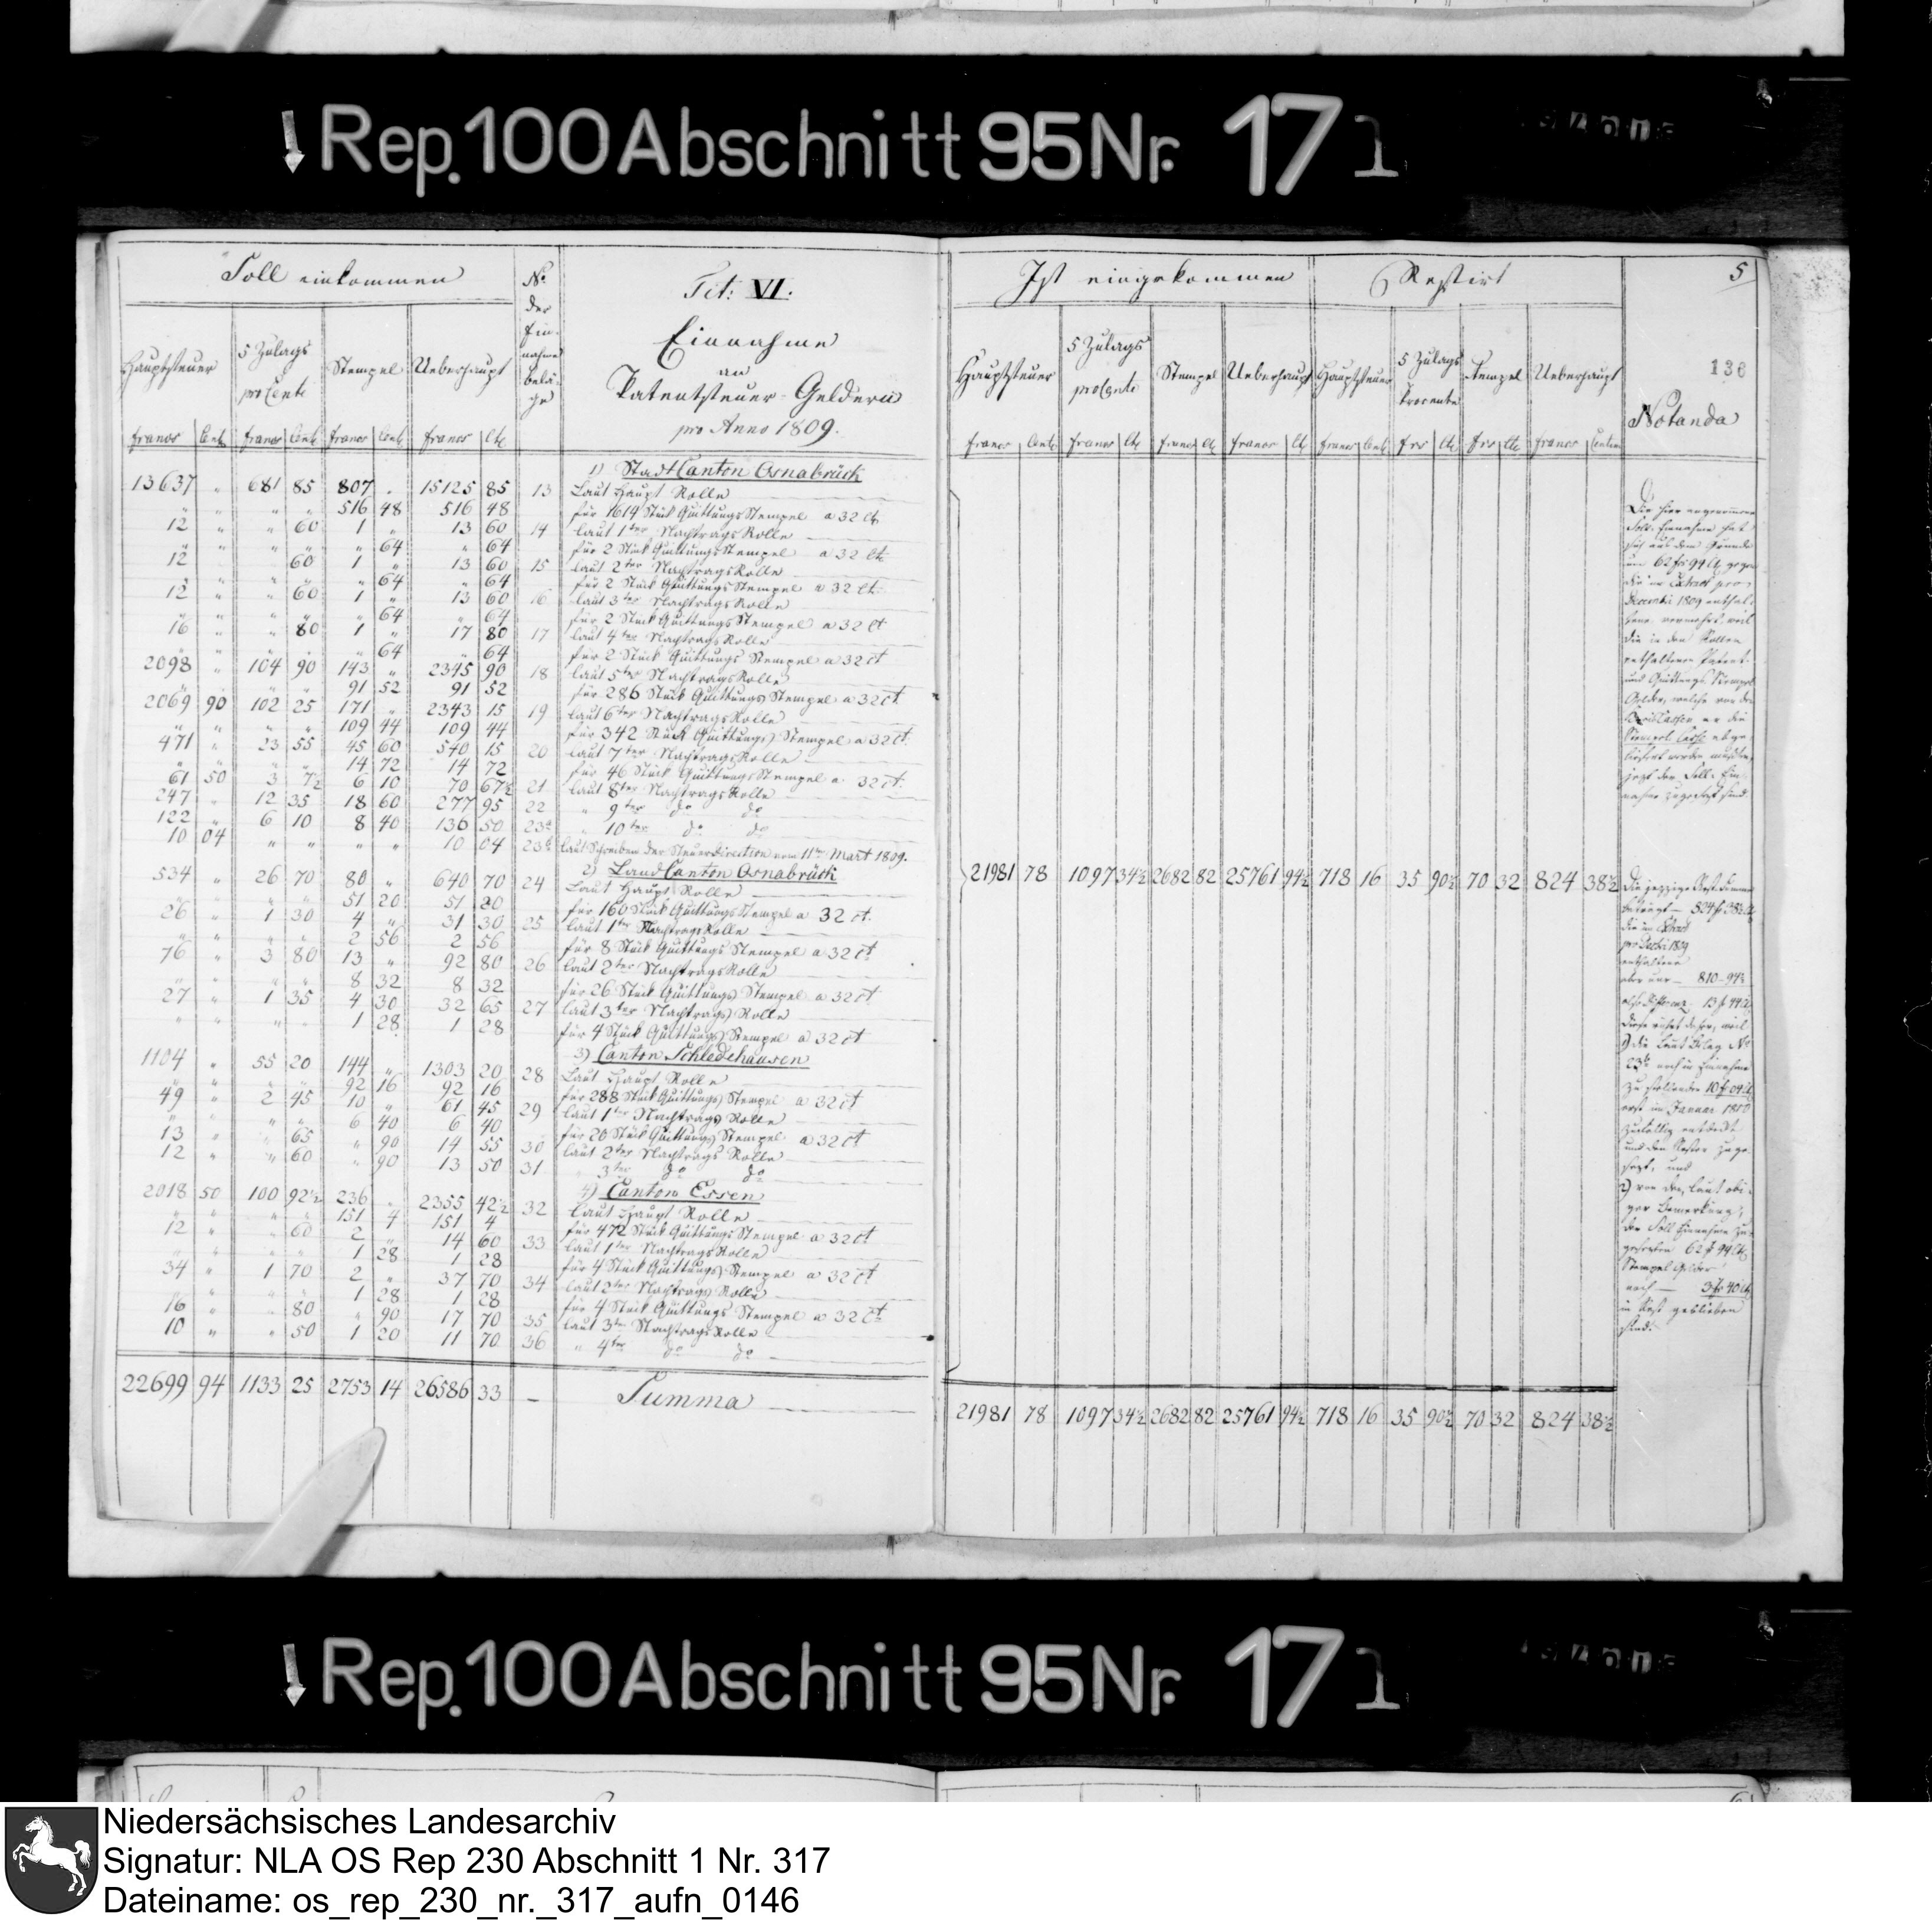 Rep. 100 Abschnitt 95 Nr. 171
Soll einkommen
Nº der Einnahme belä-ge
Tit: VI.
Einnahme
an
Patentsteuer-Geldern
pro Anno 1809.
Hauptsteuer 5 Zulags proCente Stempel Ueberhaupt
francs Cent francs Cent francs Cent francs Ct
1) Stadt Canton Osnabrück
13637 „ 681 85 807 „ 15125 85 13 Laut Haupt Rolle
„ „ „ „ 516 48 516 48 für 1614 Stück Quittungs Stempel a 32 Ct
12 „ „ 60 1 „ 13 60 14 laut 1ter Nachtrags Rolle
„ „ „ „ „ 64 „ 64 für 2 Stück Quittungs Stempel a 32 Ct
12 „ „ 60 1 „ 13 60 15 laut 2ter Nachtrags Rolle
„ „ „ „ „ 64 „ 64 für 2 Stück Quittungs Stempel a 32 Ct
12 „ „ 60 1 „ 13 60 16 laut 3ter Nachtrags Rolle
„ „ „ „ „ 64 „ 64 für 2 Stück Quittungs Stempel a 32 Ct
16 „ „ 80 1 „ 17 80 17 laut 4ter Nachtrags Rolle
„ „ „ „ „ 64 „ 64 für 2 Stück Quittungs Stempel a 32 ct
2098 „ 104 90 143 „ 2345 90 18 laut 5ter Nachtrags Rolle
„ „ „ „ 91 52 91 52 für 286 Stück Quittungs Stempel a 32 ct
2069 90 102 25 171 „ 2343 15 19 laut 6ter Nachtrags Rolle
„ „ „ „ 109 44 109 44 für 342 Stück Quittungs Stempel a 32 ct.
471 „ 23 55 45 60 540 15 20 laut 7ter Nachtrags Rolle
„ „ „ „ 14 72 14 72 für 46 Stück Quittungs Stempel a 32 ct.
61 50 3 7½ 6 10 70 67½ 21 laut 8ter Nachtrags Rolle
247 „ 12 35 18 60 277 95 22 „ 9ter do do
122 „ 6 10 8 40 136 50 23a „ 10ter do do
10 04 „ „ „ „ 10 04 23b laut Schreiben der Steuerdirection vom 11ten Mart 1809.
2) Land Canton Osnabrück
534 „ 26 70 80 „ 640 70 24 Laut Haupt Rolle
„ „ „ „ 51 20 51 20 für 160 Stück Quittungs Stempel a 32 ct.
26 „ 1 30 4 „ 31 30 25 laut 1ter Nachtrags Rolle
„ „ „ „ 2 56 2 56 für 8 Stück Quittungs Stempel a 32 ct
76 „ 3 80 13 „ 92 80 26 laut 2ter Nachtrags Rolle
„ „ „ „ 8 32 8 32 für 26 Stück Quittungs Stempel a 32 ct
27 „ 1 35 4 30 32 65 27 laut 3ter Nachtrags Rolle
„ „ „ „ 1 28 1 28 für 4 Stück Quittungs Stempel a 32 ct
3) Canton Schledehausen
1104 „ 55 20 144 „ 1303 20 28 Laut Haupt Rolle
„ „ „ „ 92 16 92 16 für 288 Stück Quittungs Stempel a 32 ct
49 „ 2 45 10 „ 61 45 29 laut 1ter Nachtrags Rolle
„ „ „ „ 6 40 6 40 für 20 Stück Quittungs Stempel a 32 ct
13 „ „ 65 „ 90 14 55 30 laut 2ter Nachtrags Rolle
12 „ „ 60 „ 90 13 50 31 „ 3ter do do
4) Canton Essen
2018 50 100 92½ 236 „ 2355 42½ 32 Laut Haupt Rolle
„ „ „ „ 151 4 151 4 für 472 Stück Quittungs Stempel a 32 ct
12 „ „ 60 2 „ 14 60 33 laut 1ter Nachtrags Rolle
„ „ „ „ 1 28 1 28 für 4 Stück Quittungs Stempel a 32 ct
34 „ 1 70 2 „ 37 70 34 laut 2ter Nachtrags Rolle
„ „ „ „ 1 28 1 28 für 4 Stück Quittungs Stempel a 32 ct
16 „ „ 80 „ 90 17 70 35 laut 3ter Nachtrags Rolle
10 „ „ 50 1 20 11 70 36 „ 4ter do do
22699 94 1133 25 2753 14 26586 33 — Summa
Ist eingekommen
Restirt
5
136
Hauptsteuer 5 Zulags proCente Stempel Ueberhaupt Hauptsteuer 5 Zulags Procente Stempel Ueberhaupt
Notanda
francs Cent francs Ct francs Ct francs Ct francs Cent frs Ct frs Ct francs Centim
21981 78 1097 34½ 2682 82 25761 94½ 718 16 35 90½ 70 32 824 38½
21981 78 1097 34½ 2682 82 25761 94½ 718 16 35 90½ 70 32 824 38½
Die hier angenommene
Soll-Einnahme hat
sich aus dem Grunde
um 62 frs 94 Ct gegen
die im Extract pro
Decembr 1809 enthal-
tene, vermehrt, weil
die in den Rollen
enthaltenen Patent-
und Quittungs Stempel
Gelder, welche von den
an die
Stempel Casse abge-
liefert werden mußten,
jetzt der Soll-Ein-
nahme zugesetzt sind.
Die jezzige Rest-Summe
beträgt — 824 fr 38½ Ct
die im Extract
pro Decbr 1809
enthaltene
aber nur — 810 - 94½
also Differenz 13 fr 44 Ct
diese rührt daher, weil
1) die laut Belag Nº
23b noch in Einnahme
zu stellenden 10 fr 04 Ct
erst im Januar 1810
zufällig entdeckt
und den Resten zuge-
setzt, und
2) von den, laut obi-
ger Bemerkung,
der Soll Einnahme zu-
gesetzten 62 fr 94 Ct
Stempel Gelder
noch — 3 fr 40 Ct
in Rest geblieben
sind.
Rep. 100 Abschnitt 95 Nr. 171
Niedersächsisches Landesarchiv
Signatur: NLA OS Rep 230 Abschnitt 1 Nr. 317
Dateiname: os_rep_230_nr._317_aufn_0146